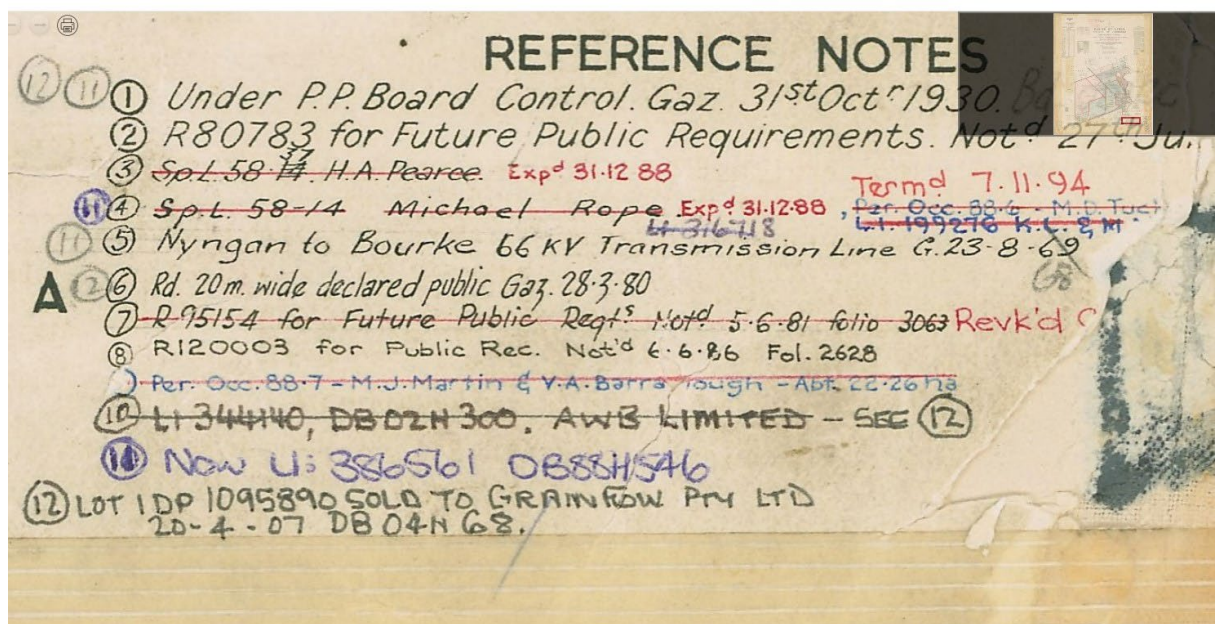 REFERENCE NOTES
12 11 1 Under P.P. Board Control. Gaz. 31st Octr 1930.
2 R80783 for Future Public Requirements. Not'd 27th Ju
3 Sp.L. 58-14 37 H.A. Pearce. Expd 31.12 88
Termd 7.11.94
11 4 Sp.L. 58-14 Michael Rope Expd 31.12.88, Per. Occ. 88-6 - M.D. Tuct
LI 316718 L.I. 199276 K.L. & M
11 5 Nyngan to Bourke 66 KV Transmission Line G. 23-8-69
68
A 12 6 Rd. 20m. wide declared public Gaz. 28.3.80
7 R 95154 for Future Public Reqts Notd 5.6.81 folio 3063 Revk'd
8 R120003 for Public Rec. Not'd 6.6.86 Fol. 2628
) Per. Occ. 88-7 - M.J. Martin & V.A. Barra ough - Abt. 22.26 ha
10 LI 344140, DB 02H 300, AWB LIMITED - SEE 12
11 Now LI: 386561 DB88H546
12 LOT 1 DP 1095890 SOLD TO GRAINFLOW PTY LTD
20-4-07 DB 04H 68.